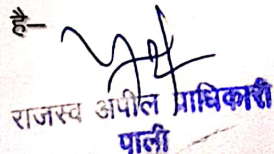 है—
राजस्व अपील प्राधिकारी
पाली